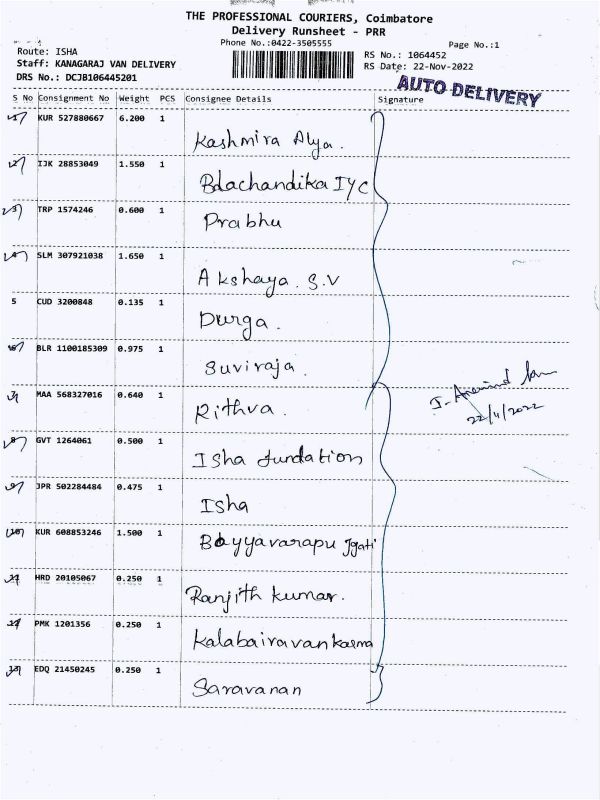 THE PROFESSIONAL COURIERS, Coimbatore
Delivery Runsheet - PRR
Phone No.:0422-3505555
Page No.:1
Route: ISHA
RS No.: 1064452
Staff: KANAGARAJ VAN DELIVERY
RS Date: 22-Nov-2022
DRS No.: DCJB106445201
AUTO DELIVERY
S No Consignment No Weight PCS Consignee Details Signature
1 KUR 527880667 6.200 1
Kashmira Alya.
2 IJK 28853049 1.550 1
Balachandika IYC
3 TRP 1574246 0.600 1
Prabhu
4 SLM 307921038 1.650 1
Akshaya. S.V
5 CUD 3200848 0.135 1
Durga.
6 BLR 1100185309 0.975 1
Suviraja.
7 MAA 568327016 0.640 1
Rithva.
22/11/2022
8 GVT 1264061 0.500 1
Isha fundation
9 JPR 502284484 0.475 1
Isha
10 KUR 608853246 1.500 1
Bayyavarapu Jgati
11 HRD 20105067 0.250 1
Ranjith kumar.
12 PMK 1201356 0.250 1
Kalabairavan Karma
13 EDQ 21450245 0.250 1
Saravanan